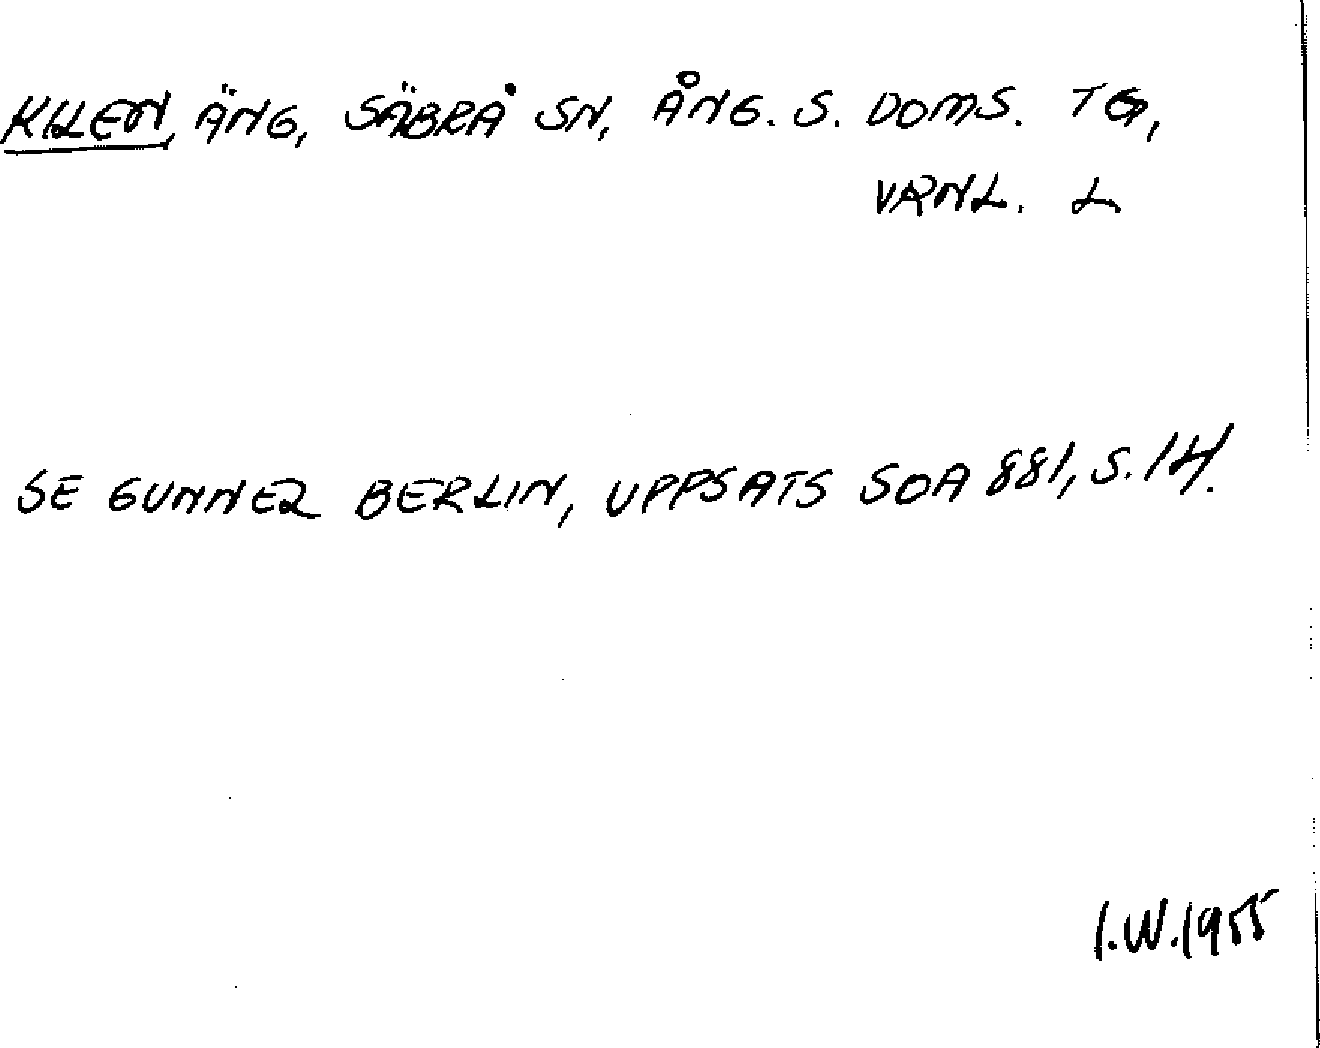 KILEN, ÄNG, SÄBRÅ SN, ÅNG. S. DOMS. TG,
VRNL. L
SE GUNNEL BERLIN, UPPSATS SOA 881, S. 14.
I.W. 1955